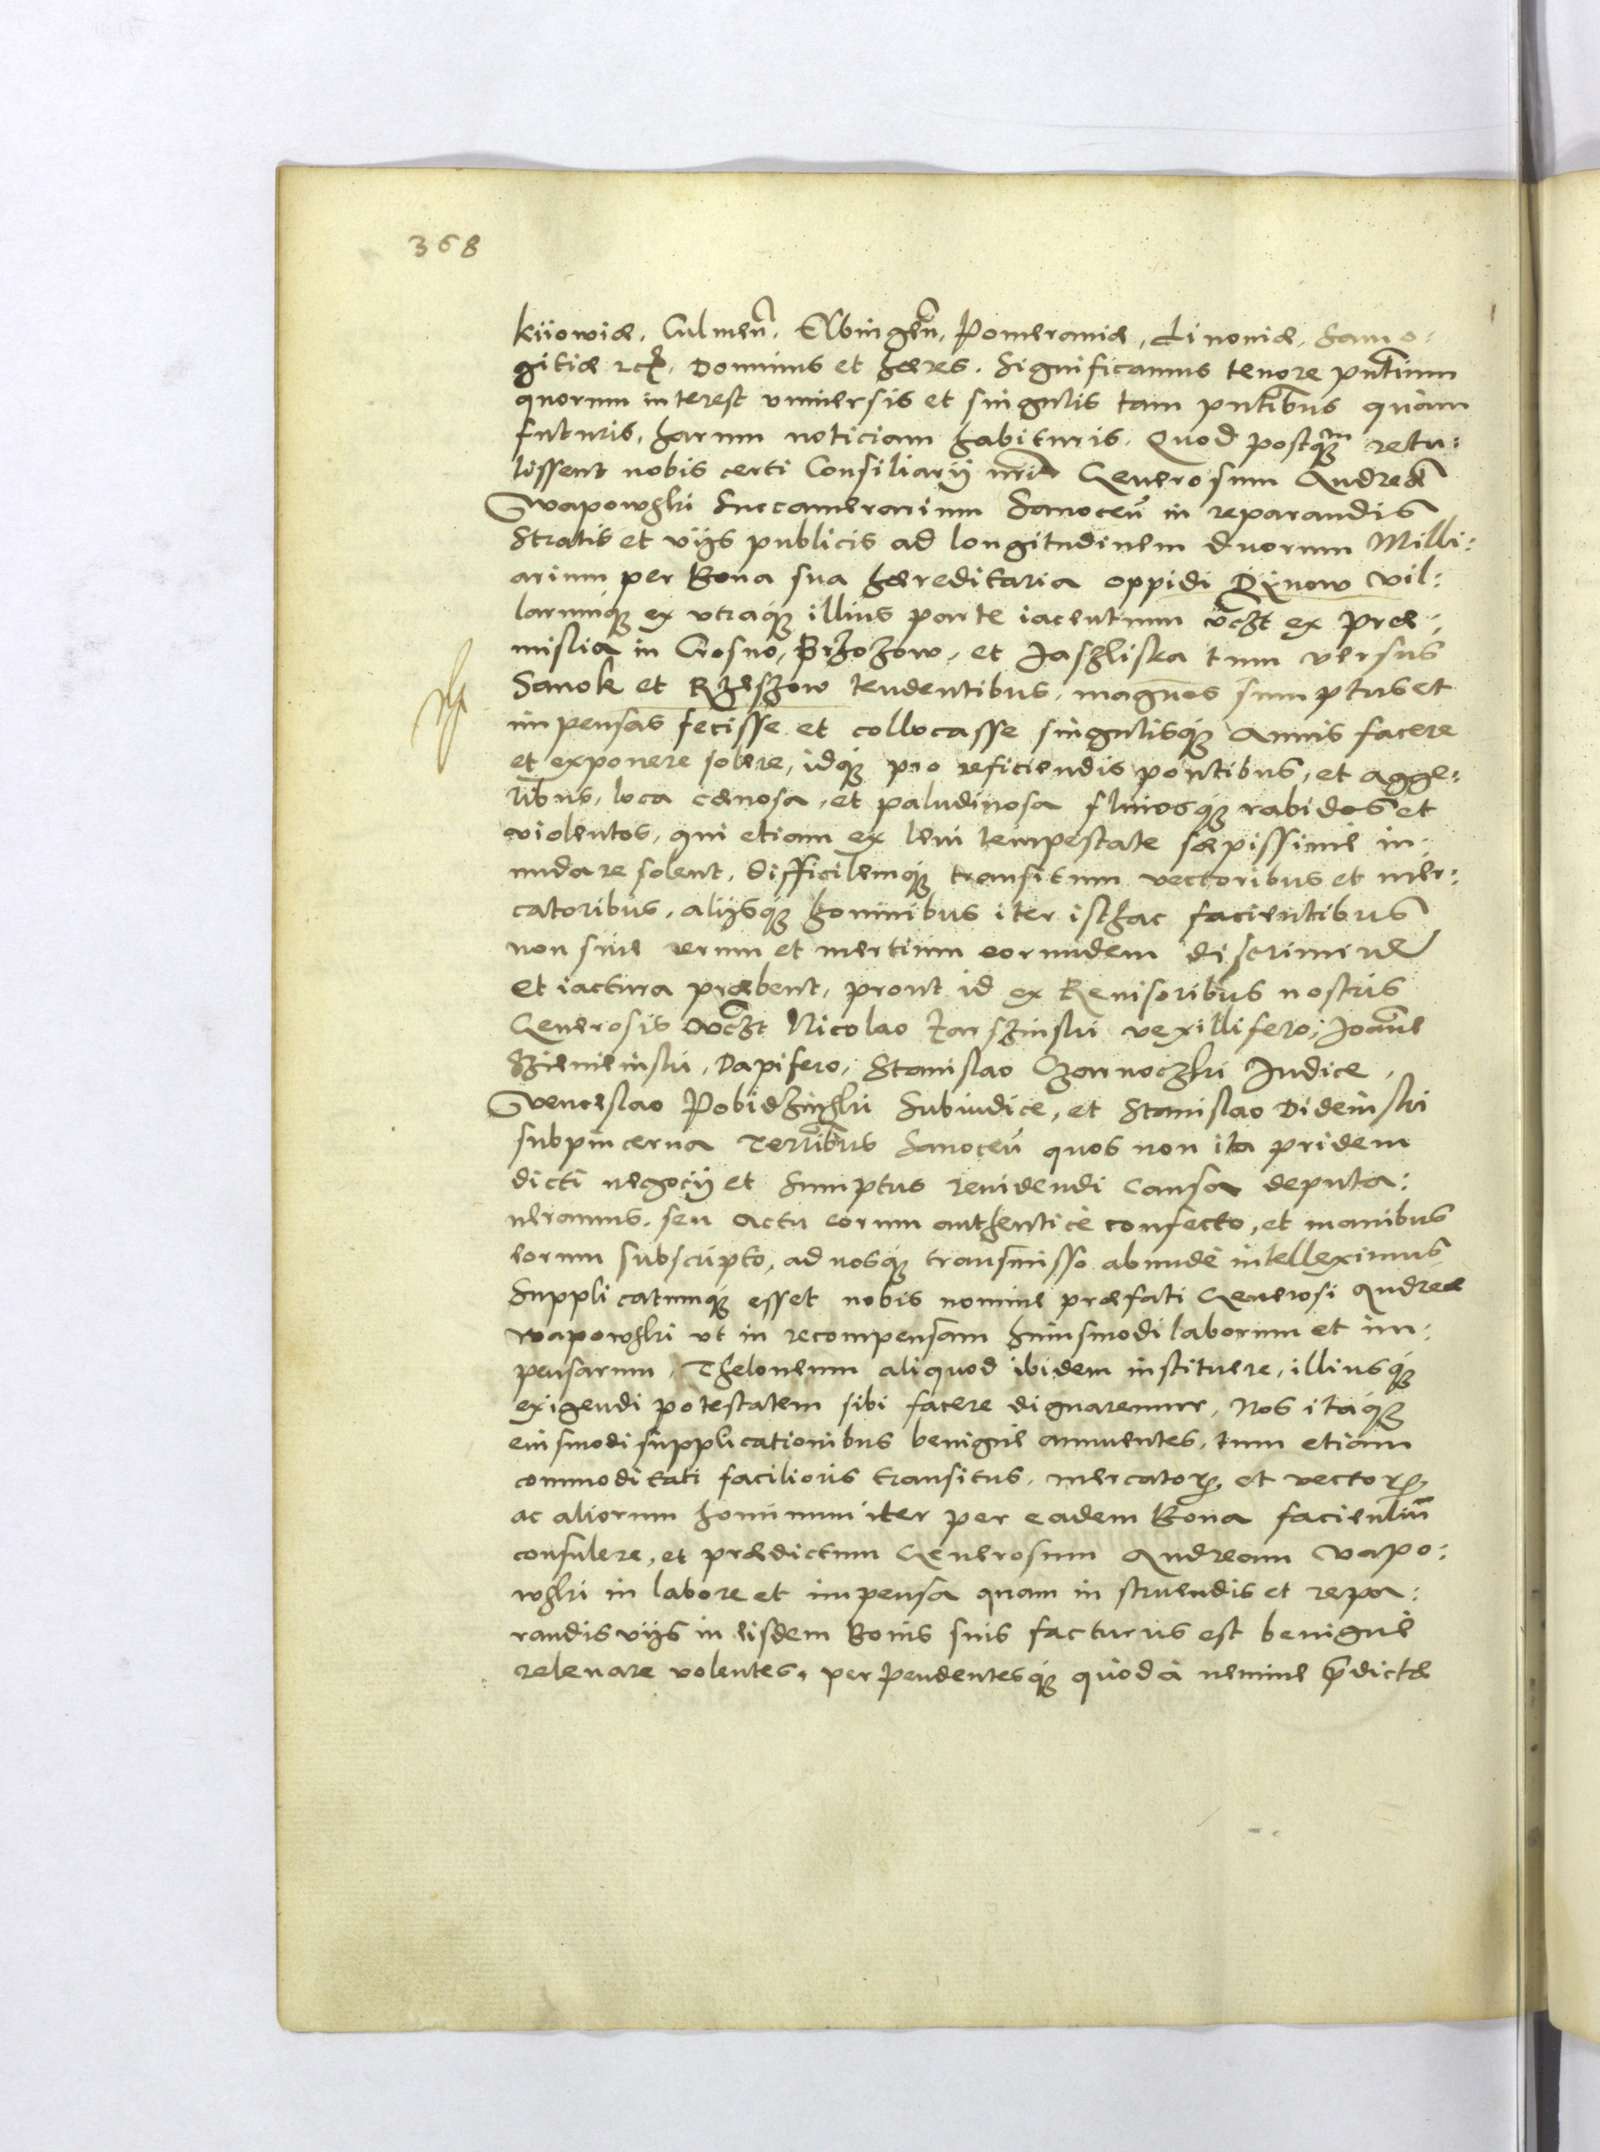 368
kiiowiæ, Culmeñ. Elbingeñ, Pomeraniæ, Livoniæ, Samo-
gitiæ etc. Dominus et hæres. Significamus tenore pñtium
quorum interest vniversis et singulis tam pñtibus quàm
futuris, harum noticiam habituris. Quod postq̃m retu:
lissent nobis certi Consiliarij nr̃i Generosum Andreã
Wapowski Succamerarium Sanoceñ in reparandis
Stratis et vijs publicis ad longitudinem duorum Milli:
arium per Bona sua hæreditaria oppidi Dinow vil:
larumq́ꝫ ex vtraq́ꝫ illius parte iacentium vcz̃t ex Præ-
mislia in Crosno, Brzozow, et Jaszliska tum versus
Sanok et Rzeszow tendentibus, magnos sumptus et
impensas fecisse et collocasse singulisq́ꝫ annis facere
et exponere solere, idq́ꝫ pro reficiendis pontibus, et agge:
ribus, loca cænosa, et paludinosa fluviosq́ꝫ rabidos et
violentos, qui etiam ex levi tempestate sæpissime in-
undare solent, difficilemq́ꝫ transitum vectoribus et mer:
catoribus, alijsq́ꝫ hominibus iter isthac facientibus
non sine rerum et mertium eorundem discrimine
et iactura præbent, prout id ex Revisoribus nostris
Generosis vcz̃t Nicolao Tarszinski vexillifero, Joañe
Szienienski, Dapifero, Stanislao Czarnoczki Judice,
Wenceslao Pobidzinski Subiudice, et Stanislao Didenski
subpincerna Terrĩbus Sanoceñ quos non ita pridem
dicti negocij et Sumptus revidendi causa deputa:
veramus, seu actu eorum authenticè confecto, et manibus
eorum subscripto, ad nosq́ꝫ transmisso abundè intelleximus
Supplicatumq́ꝫ esset nobis nomine præfati Generosi Andreæ
Wapowski vt in recompensam huiusmodi laborum et im:
pensarum, Theloneum aliquod ibidem instituere, illiusq́ꝫ
exigendi potestatem sibi facere dignaremur, Nos itaq́ꝫ
eiusmodi supplicationibus benigne annuentes, tum etiam
commoditati facilioris transitus, mercatorꝝ et vectorꝝ
ac aliorum hominum iter per eadem Bona facientiũ
consulere, et prædictum Generosum Andream Vapo:
wski in labore et impensa quam in struendis et repa:
randis vijs in eisdem Bonis suis facturus est benigne
relevare volentes, perpendentesq́ꝫ quòd à nemine p̃dictæ